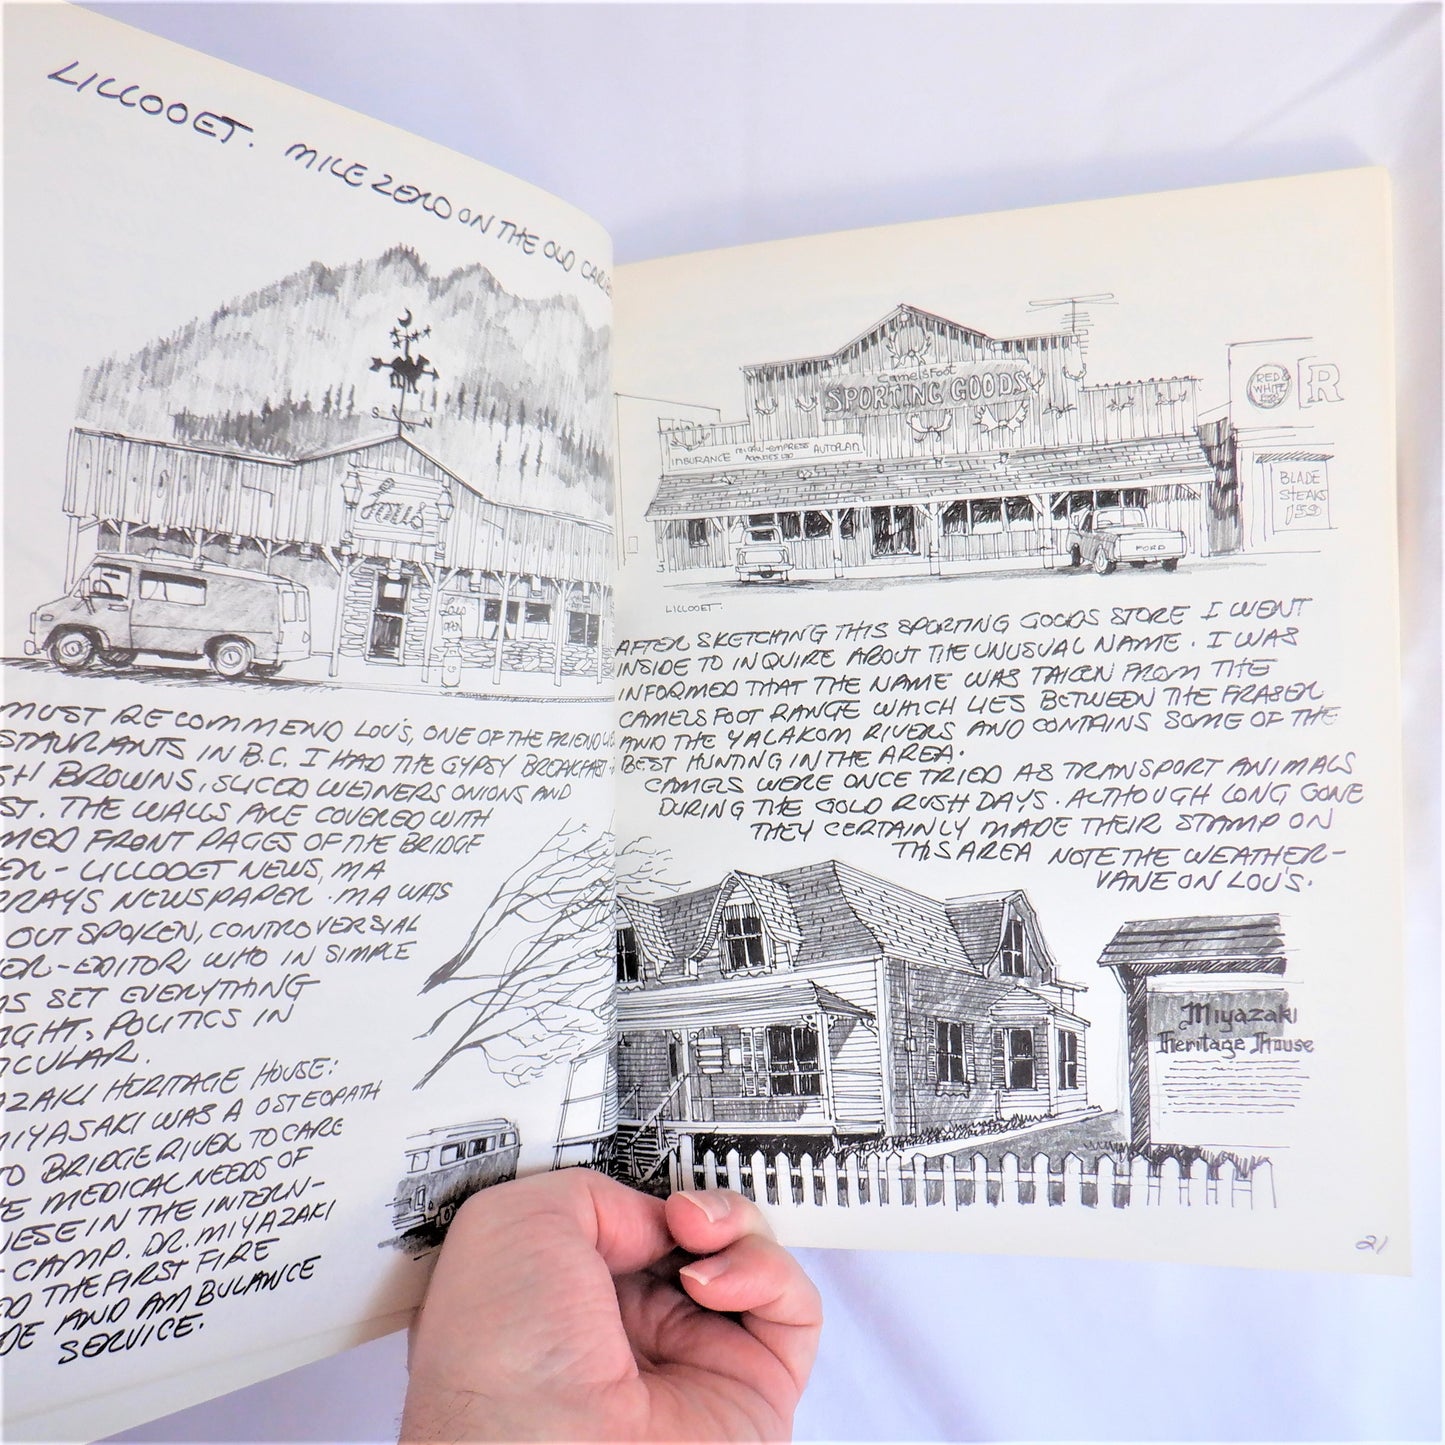 LILLOOET. MILE ZERO ON THE OLD
S N
Lou's
Lou's
OPEN
MUST RECOMMEND LOU'S, ONE OF THE
IN B.C. I HAD THE GYPSY BREAKFAST -
BROWNS, SLICED WEINERS ONIONS AND
THE WALLS ARE COVERED WITH
FRONT PAGES OF THE BRIDGE
- LILLOOET NEWS, MA
NEWSPAPER. MA WAS
OUT SPOKEN, CONTROVERSIAL
-EDITOR, WHO IN SIMPLE
SET EVERYTHING
POLITICS IN
HERITAGE HOUSE:
MIYASAKI WAS A OSTEOPATH
TO BRIDGE RIVER TO CARE
MEDICAL NEEDS OF
IN THE INTERN-
CAMP. DR. MIYAZAKI
THE FIRST FIRE
AND AMBULANCE
SERVICE.
CamelsFoot
SPORTING GOODS
INSURANCE AUTOPLAN
RED &
WHITE
R
BLADE
STEAKS
1.59
FORD
LILLOOET.
AFTER SKETCHING THIS SPORTING GOODS STORE I WENT
INSIDE TO INQUIRE ABOUT THE UNUSUAL NAME. I WAS
INFORMED THAT THE NAME WAS TAKEN FROM THE
CAMELSFOOT RANGE WHICH LIES BETWEEN THE FRASER
AND THE YALAKOM RIVERS AND CONTAINS SOME OF THE
BEST HUNTING IN THE AREA.
CAMELS WERE ONCE TRIED AS TRANSPORT ANIMALS
DURING THE GOLD RUSH DAYS. ALTHOUGH LONG GONE
THEY CERTAINLY MADE THEIR STAMP ON
THIS AREA NOTE THE WEATHER-
VANE ON LOU'S.
Miyazaki
Heritage House
21